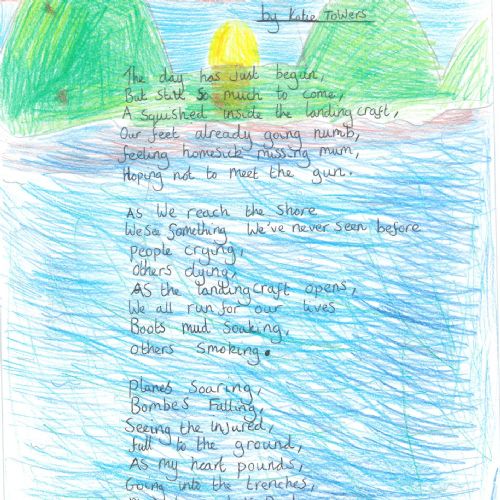 by Katie Towers
The day has Just begun,
But still so much to come,
A squished inside the landing craft,
Our feet already going numb,
feeling homesick missing mum,
Hoping not to meet the gun.
As We reach the shore
We see something We've never seen before
People crying,
Others dying,
AS the landing craft opens,
We all run for our lives
Boots mud soaking,
others smoking.
Planes Soaring,
Bombes Falling,
Seeing the injured,
fall to the ground,
As my heart pounds,
Going into the trenches,